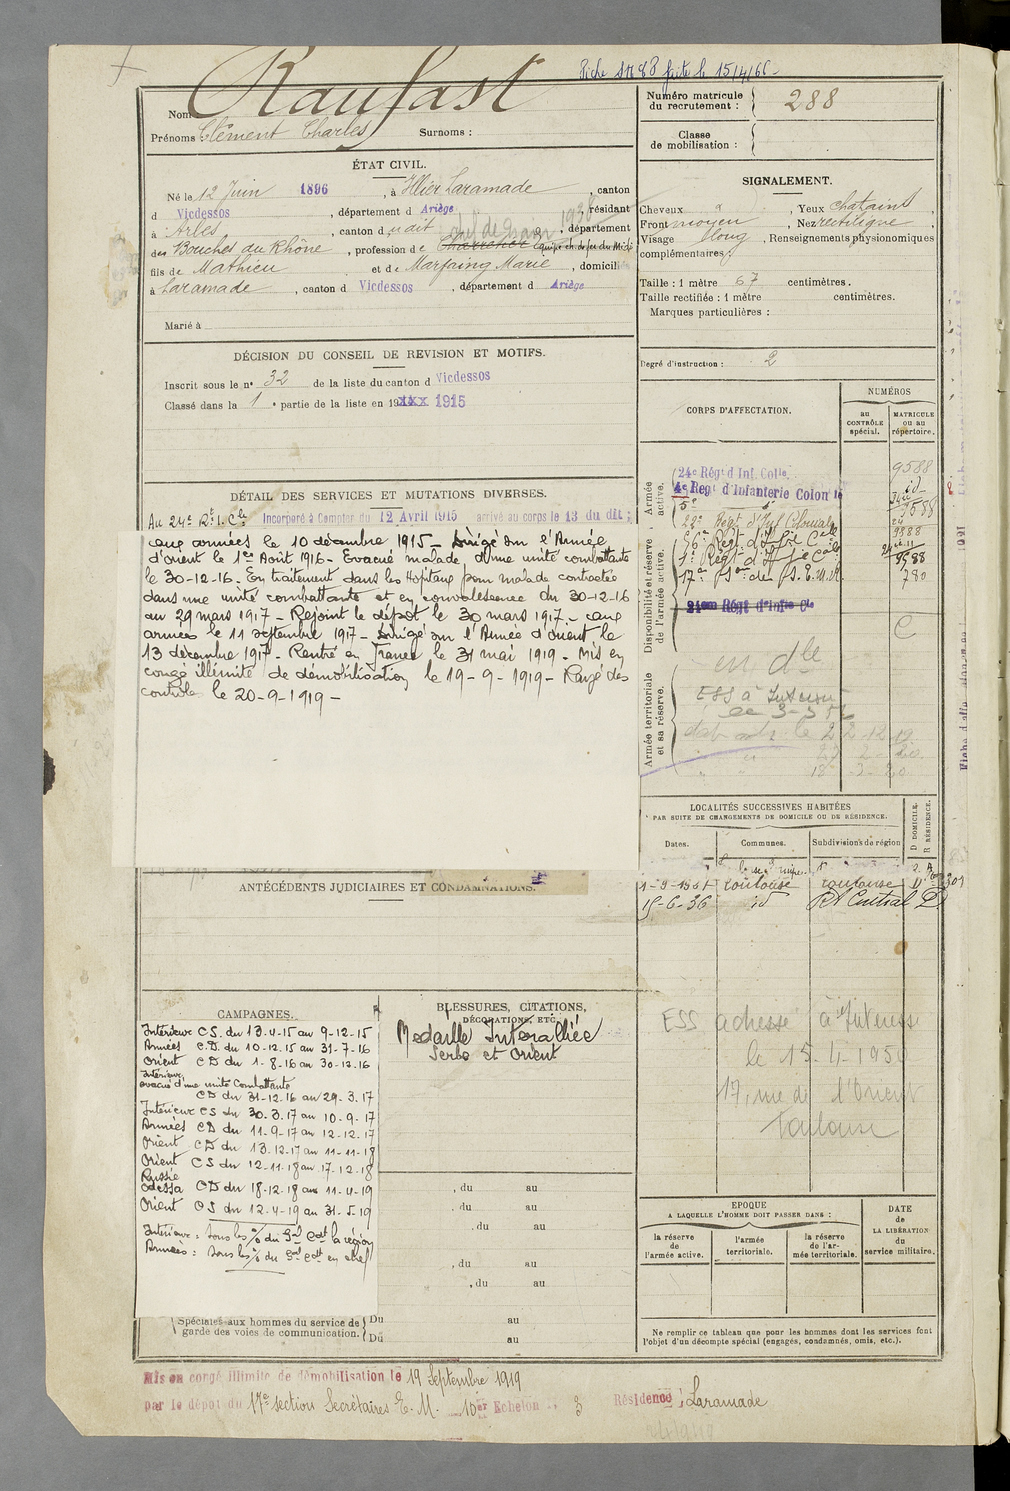 Fiche faite le 15/4/66
Nom Raufast
Prénoms : Clément Charles Surnoms :
Numéro matricule du recrutement : 288
Classe de mobilisation :
ÉTAT CIVIL.
Né le 12 Juin 1896, à Illier Laramade, canton
d Vicdessos, département d Ariège, résidant
à Arles, canton d udit, département
des Bouches du Rhône, profession de
fils de Mathieu et de Marfaing Marie, domicil
à Laramade, canton d Vicdessos, département d Ariège
Marié à
SIGNALEMENT.
Cheveux, Yeux chatains,
Front moyen, Nez rectiligne,
Visage long, Renseignements physionomiques
complémentaires :
Taille : 1 mètre 67 centimètres.
Taille rectifiée : 1 mètre centimètres.
Marques particulières :
Degré d'instruction : 2
DÉCISION DU CONSEIL DE REVISION ET MOTIFS.
Inscrit sous le n° 32 de la liste du canton d Vicdessos
Classé dans la 1e partie de la liste en 19xxx 1915
DÉTAIL DES SERVICES ET MUTATIONS DIVERSES.
Au 24e Rt I. Cle Incorporé à Compter du 12 Avril 1915 arrivé au corps le 13 du dit ;
aux armées le 10 décembre 1915 – Dirigé sur l'Armée
d'orient le 1er Août 1916 – Evacué malade d'une unité combattante
le 30-12-16 – En traitement dans les Hôpitaux pour maladie contractée
dans une unité combattante et en convalescence du 30-12-16
au 29 mars 1917 – Rejoint le dépôt le 30 mars 1917 – aux
armées le 11 septembre 1917 – Dirigé sur l'Armée d'orient le
13 décembre 1917 – Rentré en France le 31 mai 1919 – Mis en
congé illimité de démobilisation le 19-9-1919 – Rayé des
contrôles le 20-9-1919 –
CORPS D'AFFECTATION.
NUMÉROS
au CONTRÔLE spécial.
MATRICULE ou au répertoire.
Armée active.
24e Régt d Inf. Colle. 9588
4e Regt d'Infanterie Colonle id
Disponibilité et réserve de l'armée active.
22e Régt d'Inf Coloniale
1er Régt d'Ifie Cole 9588
17e Son de S.E.M.R. 780
24em Régt d'Infie Cle
C
Armée territoriale et sa réserve.
en dle
LOCALITÉS SUCCESSIVES HABITÉES
PAR SUITE DE CHANGEMENTS DE DOMICILE OU DE RÉSIDENCE.
Dates. Communes. Subdivisions de région D DOMICILE. R RÉSIDENCE.
toulouse toulouse D
15-6-36 id RA Central D
ESS adressé à l'Intéressé
17, rue de l'Orient
Toulouse
ANTÉCÉDENTS JUDICIAIRES ET CONDAMNATIONS.
CAMPAGNES.
Intérieur CS. du 13-4-15 au 9-12-15
Armées CD. du 10-12-15 au 31-7-16
Orient CD du 1-8-16 au 30-12-16
Intérieur
évacué d'une unité Combattante
CD du 31-12-16 au 29-3-17
Intérieur CS du 30-3-17 au 10-9-17
Armées CD du 11-9-17 au 12-12-17
Orient CD du 13-12-17 au 11-11-18
Orient CS du 12-11-18 au 17-12-18
Russie
Odessa CD du 18-12-18 au 11-4-19
Orient CS du 12-4-19 au 31-5-19
Intérieur : sous les % du Gal Cdt la région
Armées : sous les % du Gal Cdt en chef
BLESSURES, CITATIONS,
DÉCORATIONS, ETC.
Medaille Interalliée
Serbe et Orient
, du au
, du au
, du au
, du au
, du au
Spéciales aux hommes du service de garde des voies de communication. Du au
Du au
EPOQUE
A LAQUELLE L'HOMME DOIT PASSER DANS :
la réserve de l'armée active.
l'armée territoriale.
la réserve de l'armée territoriale.
DATE de LA LIBÉRATION du service militaire.
Ne remplir ce tableau que pour les hommes dont les services font
l'objet d'un décompte spécial (engagés, condamnés, omis, etc.).
Mis en congé illimité de démobilisation le 19 Septembre 1919
par le dépôt du 17e section Secrétaires E. M. 10er Echelon 3 Résidence : Laramade